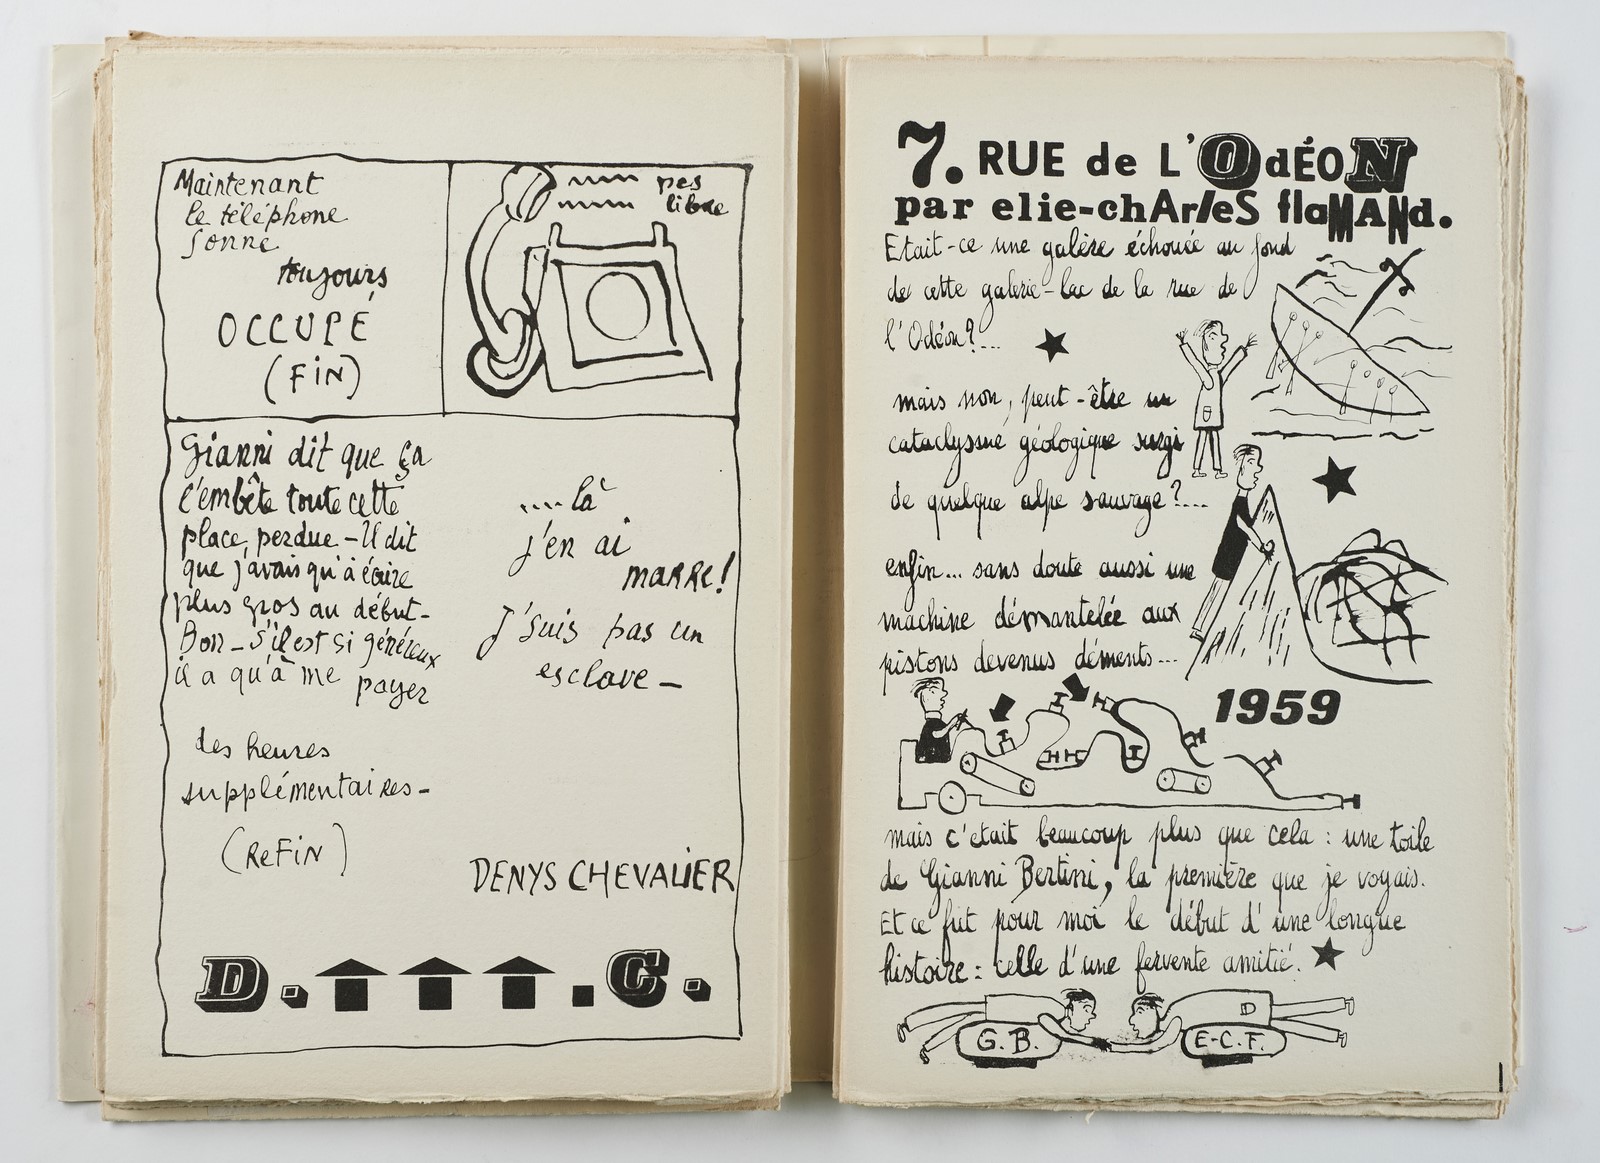 Maintenant
le téléphone
sonne
toujours
OCCUPÉ
(FiN)
pas
libre
Gianni dit que ça
l'embête toute cette
place, perdue – Il dit
que j'avais qu'à écrire
plus gros au début –
Bon – S'il est si généreux
il a qu'à me payer
des heures
supplémentaires –
(ReFiN)
.... là
j'en ai
MARRE!
J'suis pas un
esclave –
DENYS CHEVALiER
D. . C.
7. RUE de L'OdÉON
par elie-chArleS flaMANd.
Etait-ce une galère échouée au fond
de cette galerie-lac de la rue de
l'Odéon?...
mais non, peut-être un
cataclysme géologique surgi
de quelque alpe sauvage?....
enfin... sans doute aussi une
machine démantelée aux
pistons devenus déments...
1959
mais c'était beaucoup plus que cela : une toile
de Gianni Bertini, la première que je voyais.
Et ce fut pour moi le début d'une longue
histoire : celle d'une fervente amitié.
D
G.B.
E-C.F.